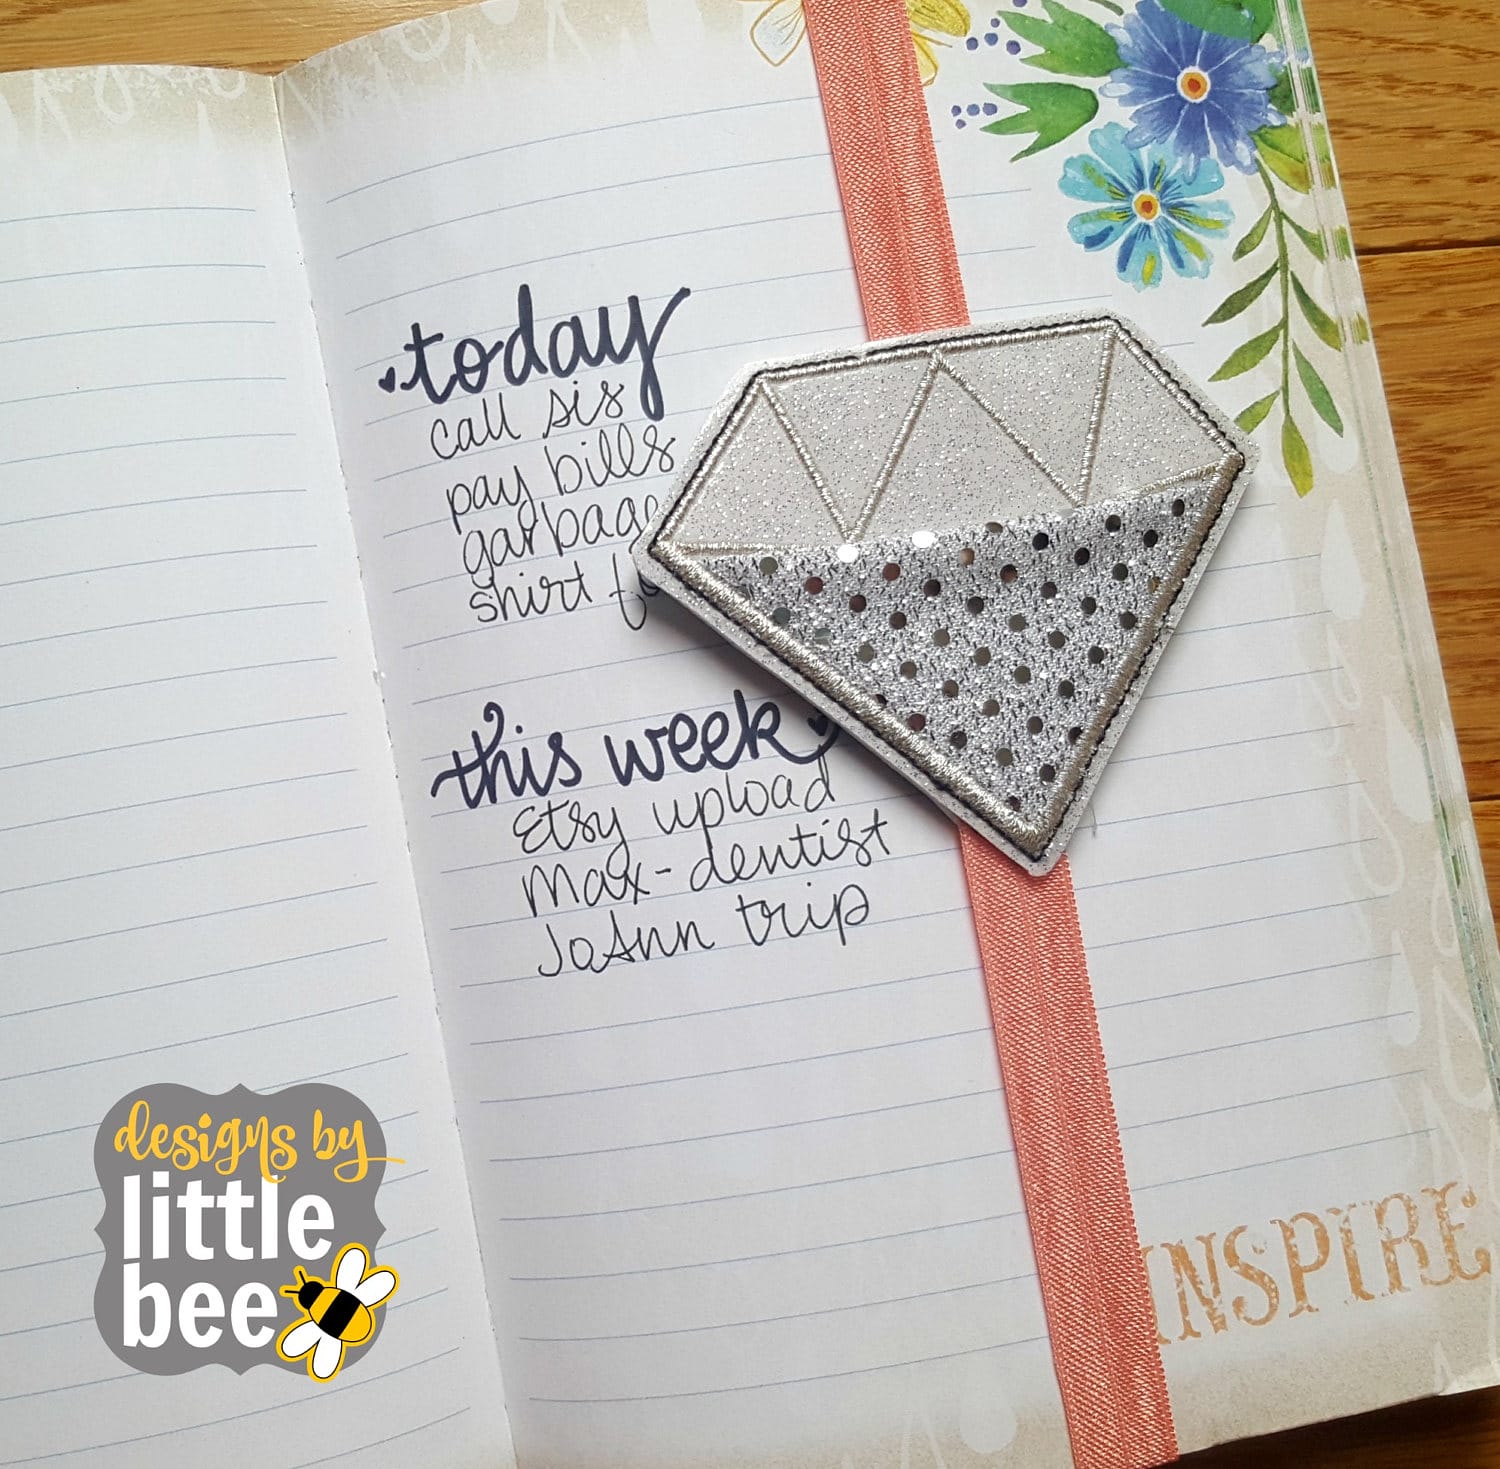 today
call sis
pay bills
garbage
shirt
this week
Etsy upload
Max-dentist
JoAnn trip
INSPIRE
designs by
little
bee